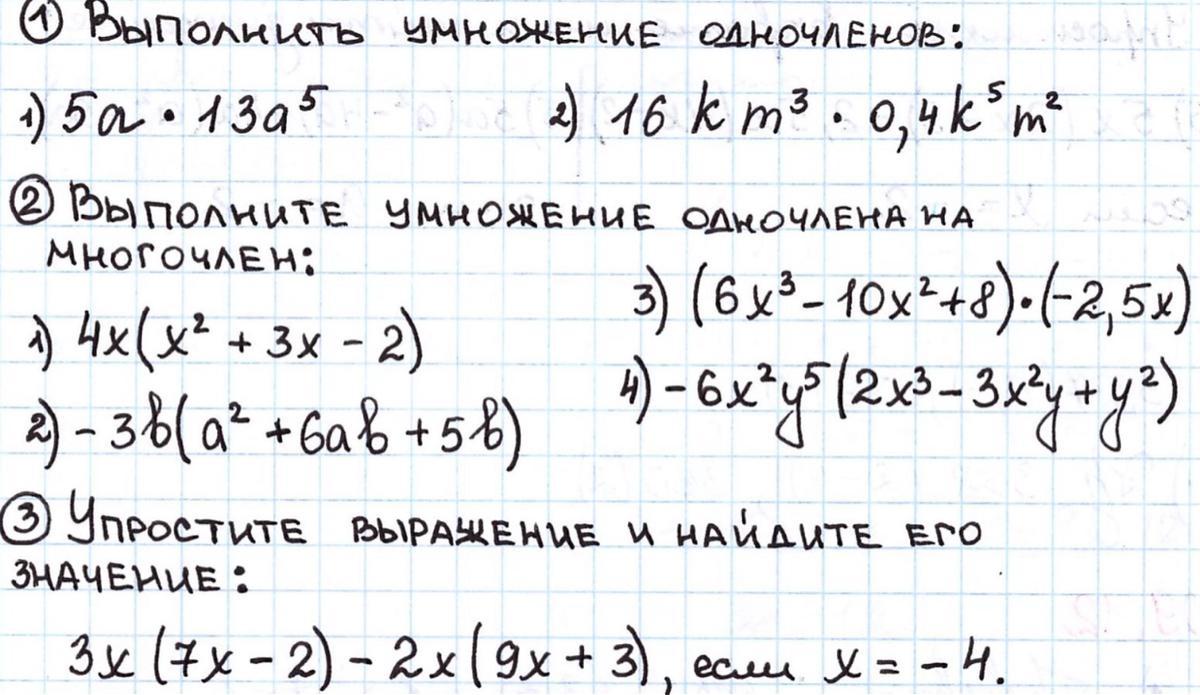 ① Выполнить умножение одночленов:
1) 5a · 13a⁵ 2) 16 k m³ · 0,4k⁵ m²
② Выполните умножение одночлена на
многочлен:
1) 4x(x² + 3x - 2)
2) - 3b(a² + 6ab + 5b)
3) (6x³ - 10x² + 8) · (-2,5x)
4) - 6x²y⁵ (2x³ - 3x²y + y²)
③ Упростите выражение и найдите его
значение:
3x (7x - 2) - 2x (9x + 3), если x = - 4.